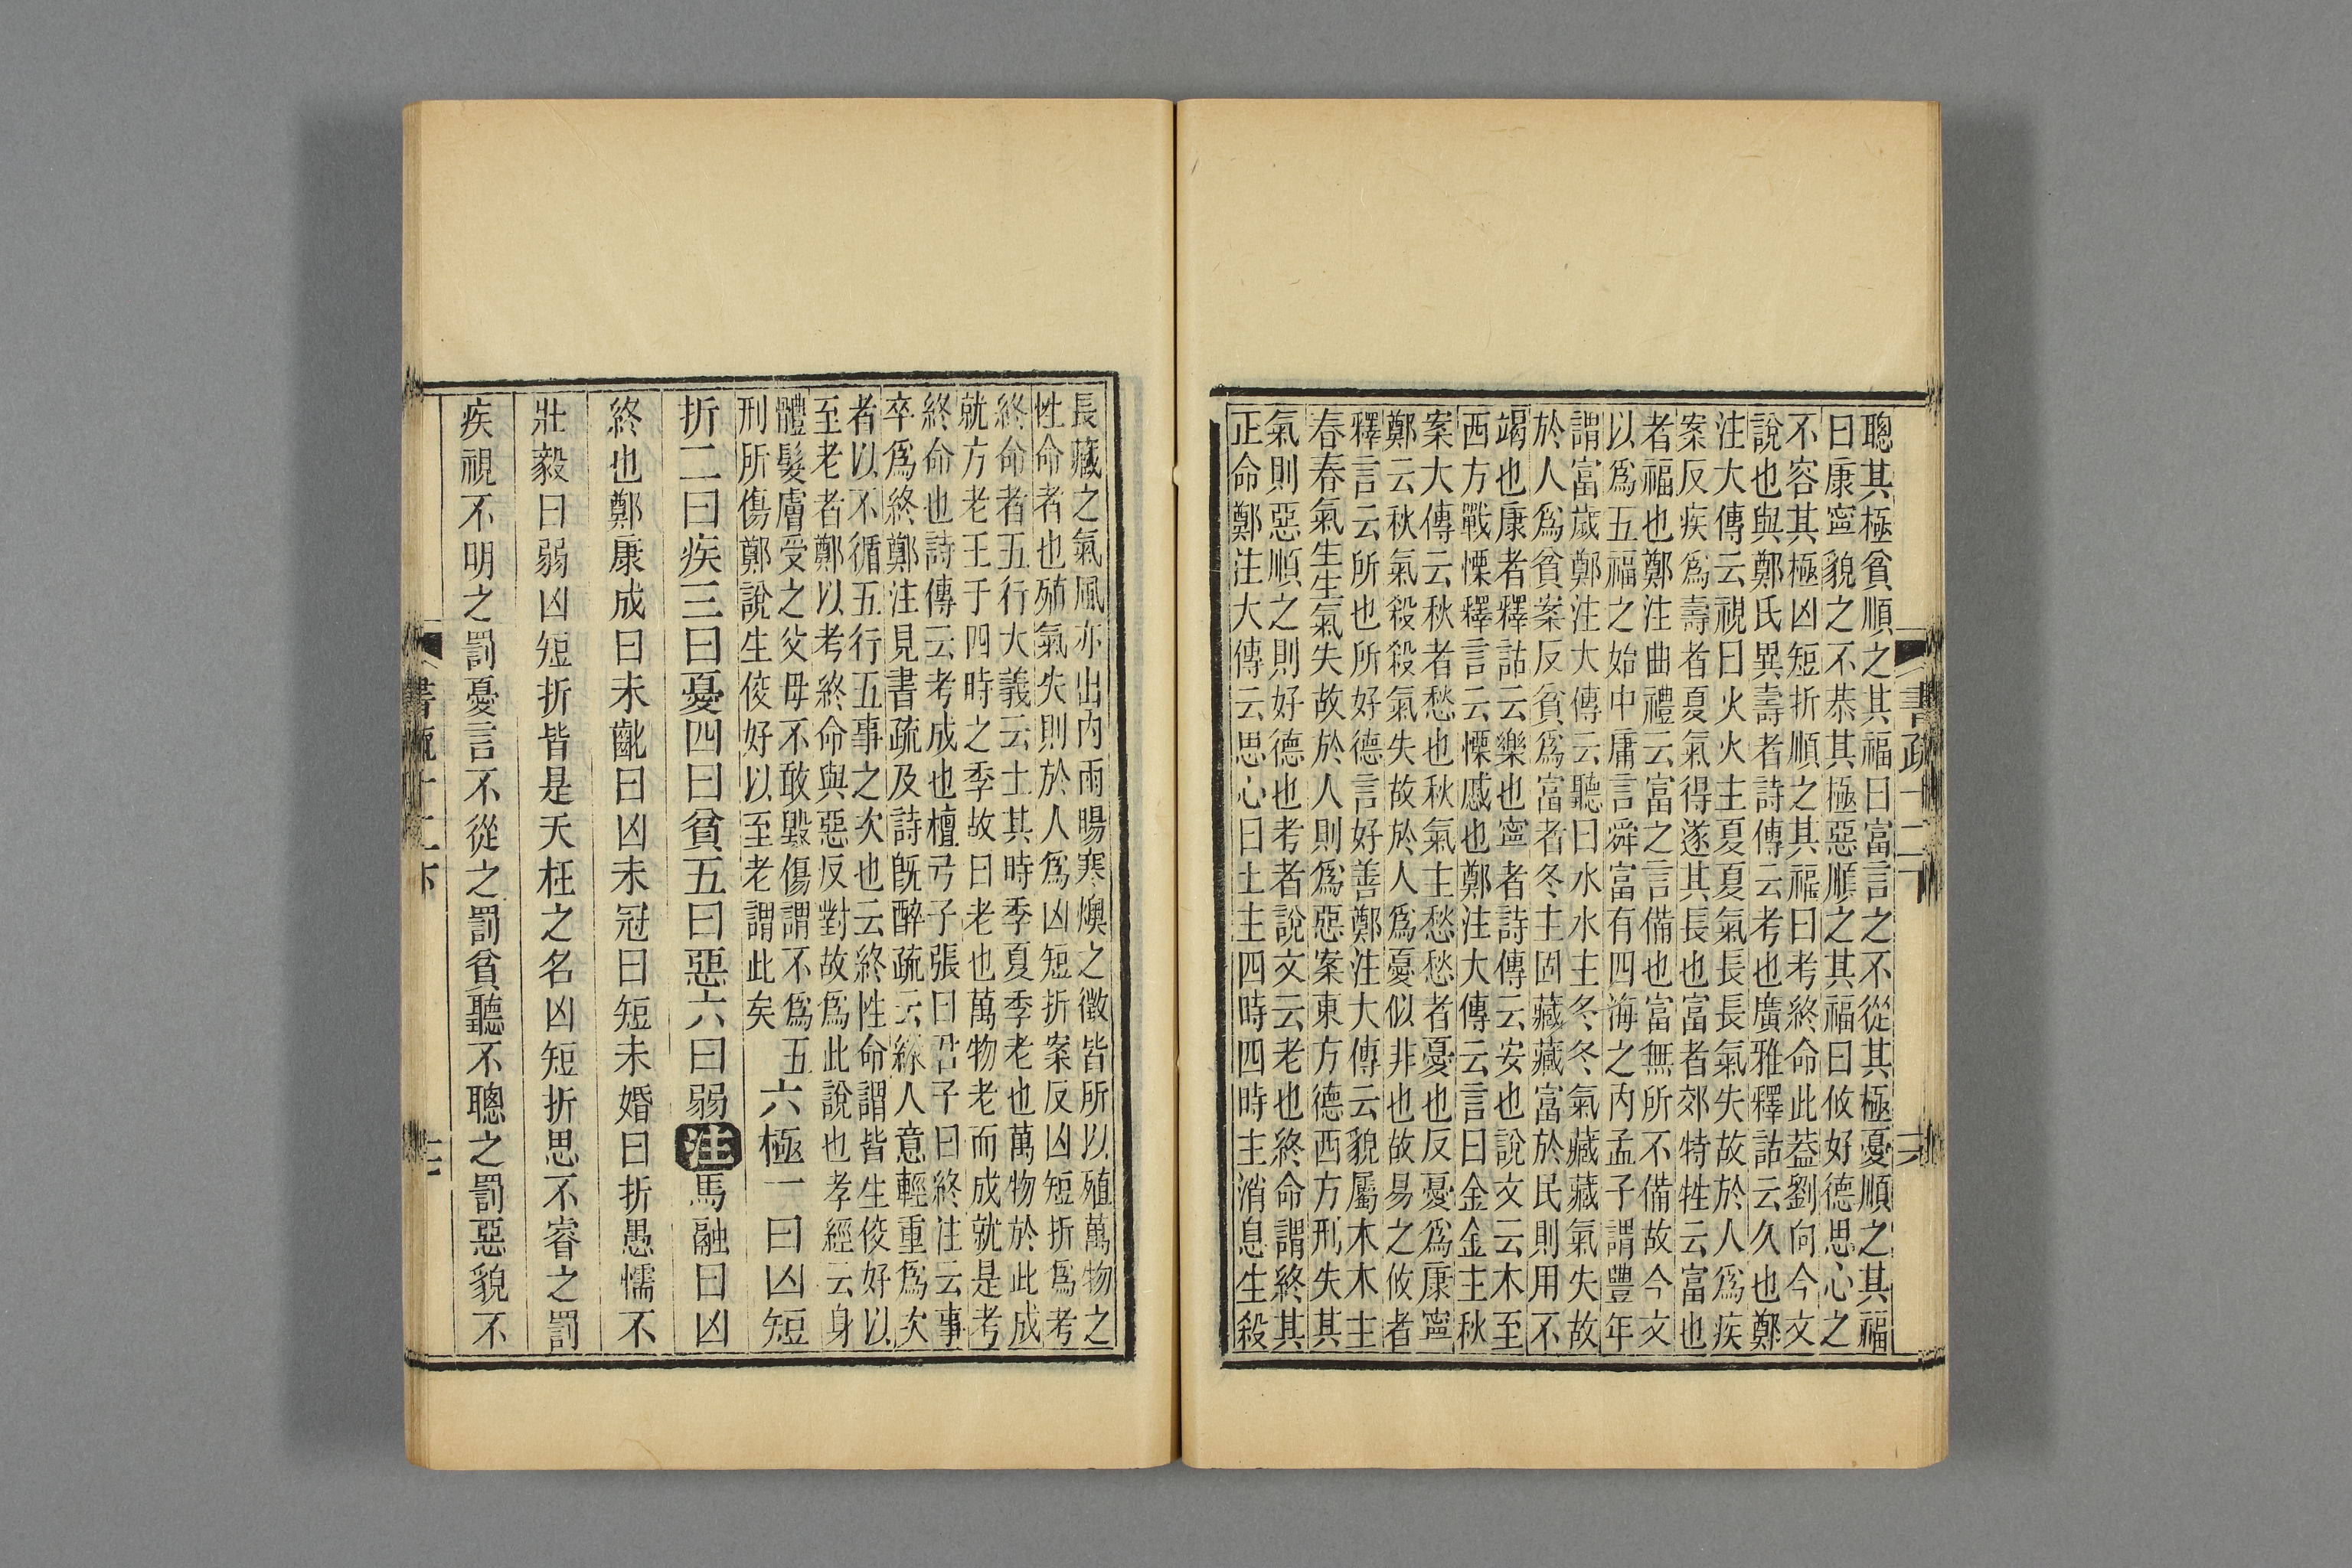 聰其極貧順之其福曰富言之不從其極憂順之其福
曰康寧貌之不恭其極惡順之其福曰攸好德思心之
不容其極凶短折順之其福曰考終命此葢劉向今文
說也與鄭氏異壽者詩傳云考也廣雅釋詁云久也鄭
注大傳云視曰火火主夏夏氣長長氣失故於人爲疾
案反疾爲壽者夏氣得遂其長也富者郊特牲云富也
者福也鄭注曲禮云富之言備也富無所不備故今文
以爲五福之始中庸言舜富有四海之內孟子謂豐年
謂富歲鄭注大傳云聽曰水水主冬冬氣藏藏氣失故
於人爲貧案反貧爲富者冬主固藏藏富於民則用不
竭也康者釋詁云樂也寧者詩傳云安也說文云木至
西方戰慄釋言云慄慼也鄭注大傳云言曰金金主秋
案大傳云秋者愁也秋氣主愁愁者憂也反憂爲康寧
鄭云秋氣殺殺氣失故於人爲憂似非也故易之攸者
釋言云所也所好德言好善鄭注大傳云貌屬木木主
春春氣生生氣失故於人則爲惡案東方德西方刑失其
氣則惡順之則好德也考者說文云老也終命謂終其
正命鄭注大傳云思心曰土主四時四時主消息生殺
書疏十二下
六
長藏之氣風亦出內雨暘寒燠之徵皆所以殖萬物之
性命者也殖氣失則於人爲凶短折案反凶短折爲考
終命者五行大義云土其時季夏季老也萬物於此成
就方老王于四時之季故曰老也萬物老而成就是考
終命也詩傳云考成也檀弓子張曰君子曰終注云事
卒爲終鄭注見書疏及詩旣醉疏云緣人意輕重爲次
者以不循五行五事之次也云終性命謂皆生佼好以
至老者鄭以考終命與惡反對故爲此說也孝經云身
體髮膚受之父母不敢毀傷謂不爲五
刑所傷鄭說生佼好以至老謂此矣
六極一曰凶短
折二曰疾三曰憂四曰貧五曰惡六曰弱注馬融曰凶
終也鄭康成曰未齔曰凶未冠曰短未婚曰折愚懦不
壯毅曰弱凶短折皆是夭枉之名凶短折思不睿之罰
疾視不明之罰憂言不從之罰貧聽不聰之罰惡貌不